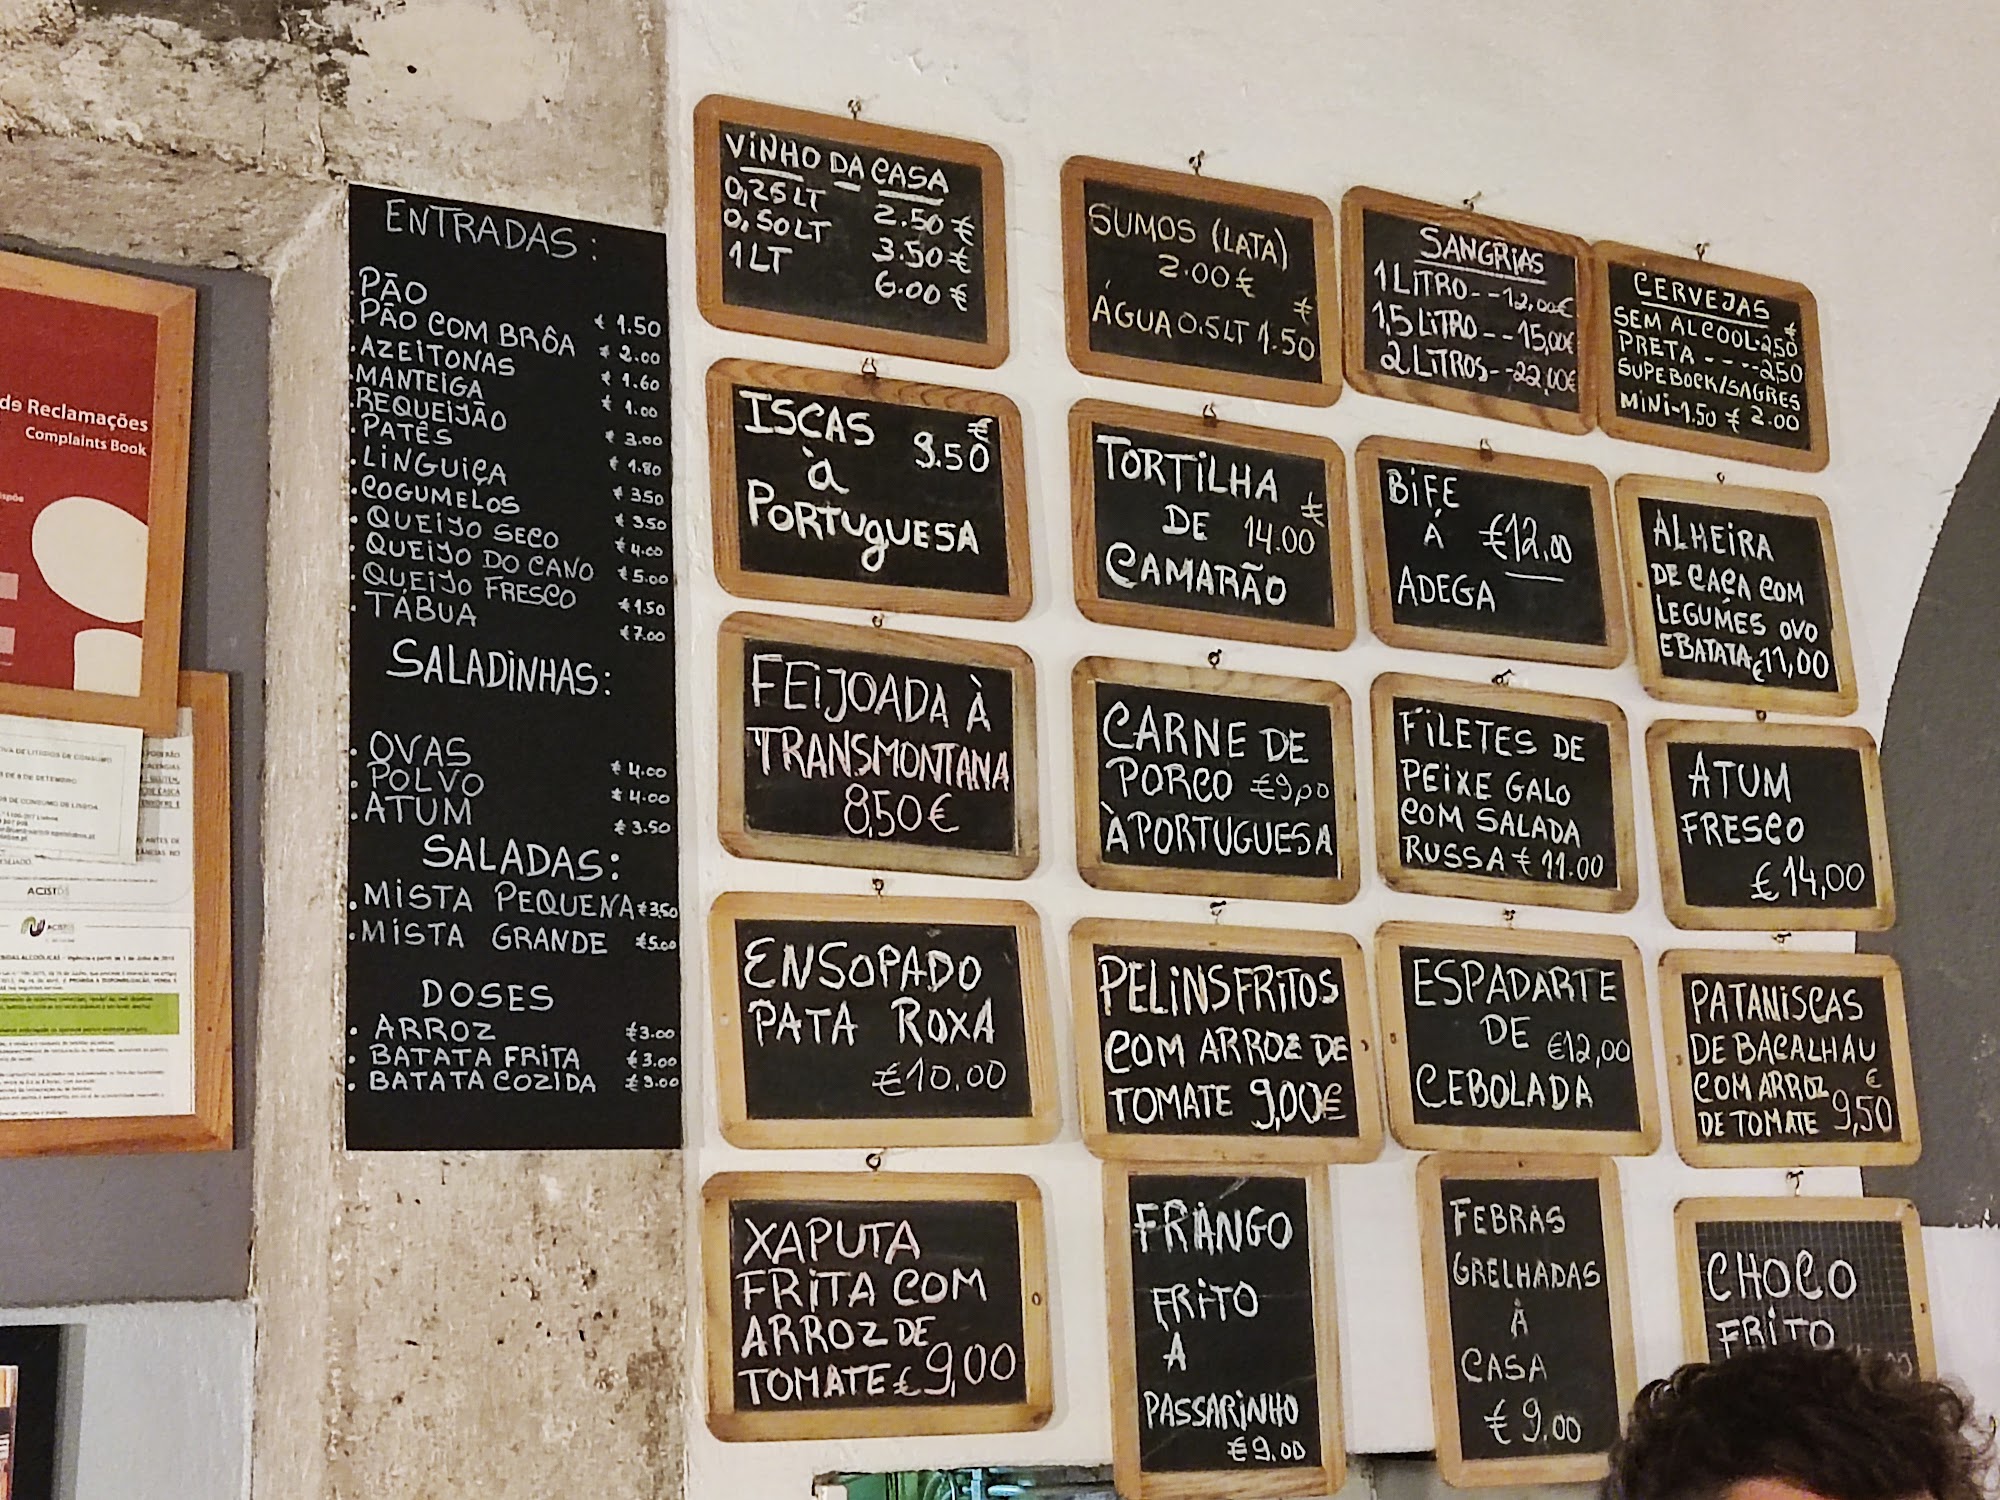 de Reclamações
Complaints Book
ACISTDS
ENTRADAS:
.PÃO € 1.50
.PÃO COM BRÔA € 2.00
.AZEITONAS € 1.60
.MANTEIGA € 1.00
.REQUEIJÃO € 3.00
.PATÊS € 1.80
.LINGUIÇA € 3.50
.COGUMELOS € 3.50
.QUEIJO SECO € 4.00
.QUEIJO DO CANO € 5.00
.QUEIJO FRESCO € 1.50
.TÁBUA € 7.00
SALADINHAS:
.OVAS € 4.00
.POLVO € 4.00
.ATUM € 3.50
SALADAS:
.MISTA PEQUENA € 3,50
.MISTA GRANDE € 5.00
DOSES
.ARROZ € 3.00
.BATATA FRITA € 3.00
.BATATA COZIDA € 3.00
VINHO DA CASA
0,25 LT 2.50 €
0,50 LT 3.50 €
1 LT 6.00 €
SUMOS (LATA)
2.00 €
€
ÁGUA 0.5LT 1.50
SANGRIAS
1 LITRO--12,00€
1,5 LITRO--15,00€
2 LITROS--22,00€
CERVEJAS
€
SEM ALCOOL-2,50
PRETA ----2,50
SUPEBOCK/SAGRES
MINI-1.50 € 2.00
ISCAS 9.50 €
à
PORTUGUESA
TORTILHA €
DE 14.00
CAMARÃO
BIFE
Á €12,00
ADEGA
ALHEIRA
DE CAÇA COM
LEGÚMES OVO
E BATATA €11,00
FEIJOADA À
TRANSMONTANA
8,50€
CARNE DE
PORCO €9,00
À PORTUGUESA
FILETES DE
PEIXE GALO
COM SALADA
RUSSA € 11.00
ATUM
FRESCO
€14,00
ENSOPADO
PATA ROXA
€10.00
PELINS FRITOS
COM ARROZ DE
TOMATE 9,00€
ESPADARTE
DE €12,00
CEBOLADA
PATANISCAS
DE BACALHAU
COM ARROZ €
DE TOMATE 9,50
XAPUTA
FRITA COM
ARROZ DE
TOMATE € 9,00
FRANGO
FRITO
A
PASSARINHO
€9.00
FEBRAS
GRELHADAS
Á
CASA
€ 9.00
CHOCO
FRITO